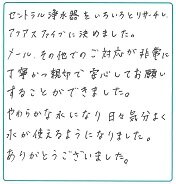 セントラル浄水器をいろいろとリサーチし
アクアスファイブに決めました。
メール、その他でのご対応が非常に
丁寧かつ親切で安心してお願い
することができました。
やわらかな水になり日々気分よく
水が使えるようになりました。
ありがとうございました。